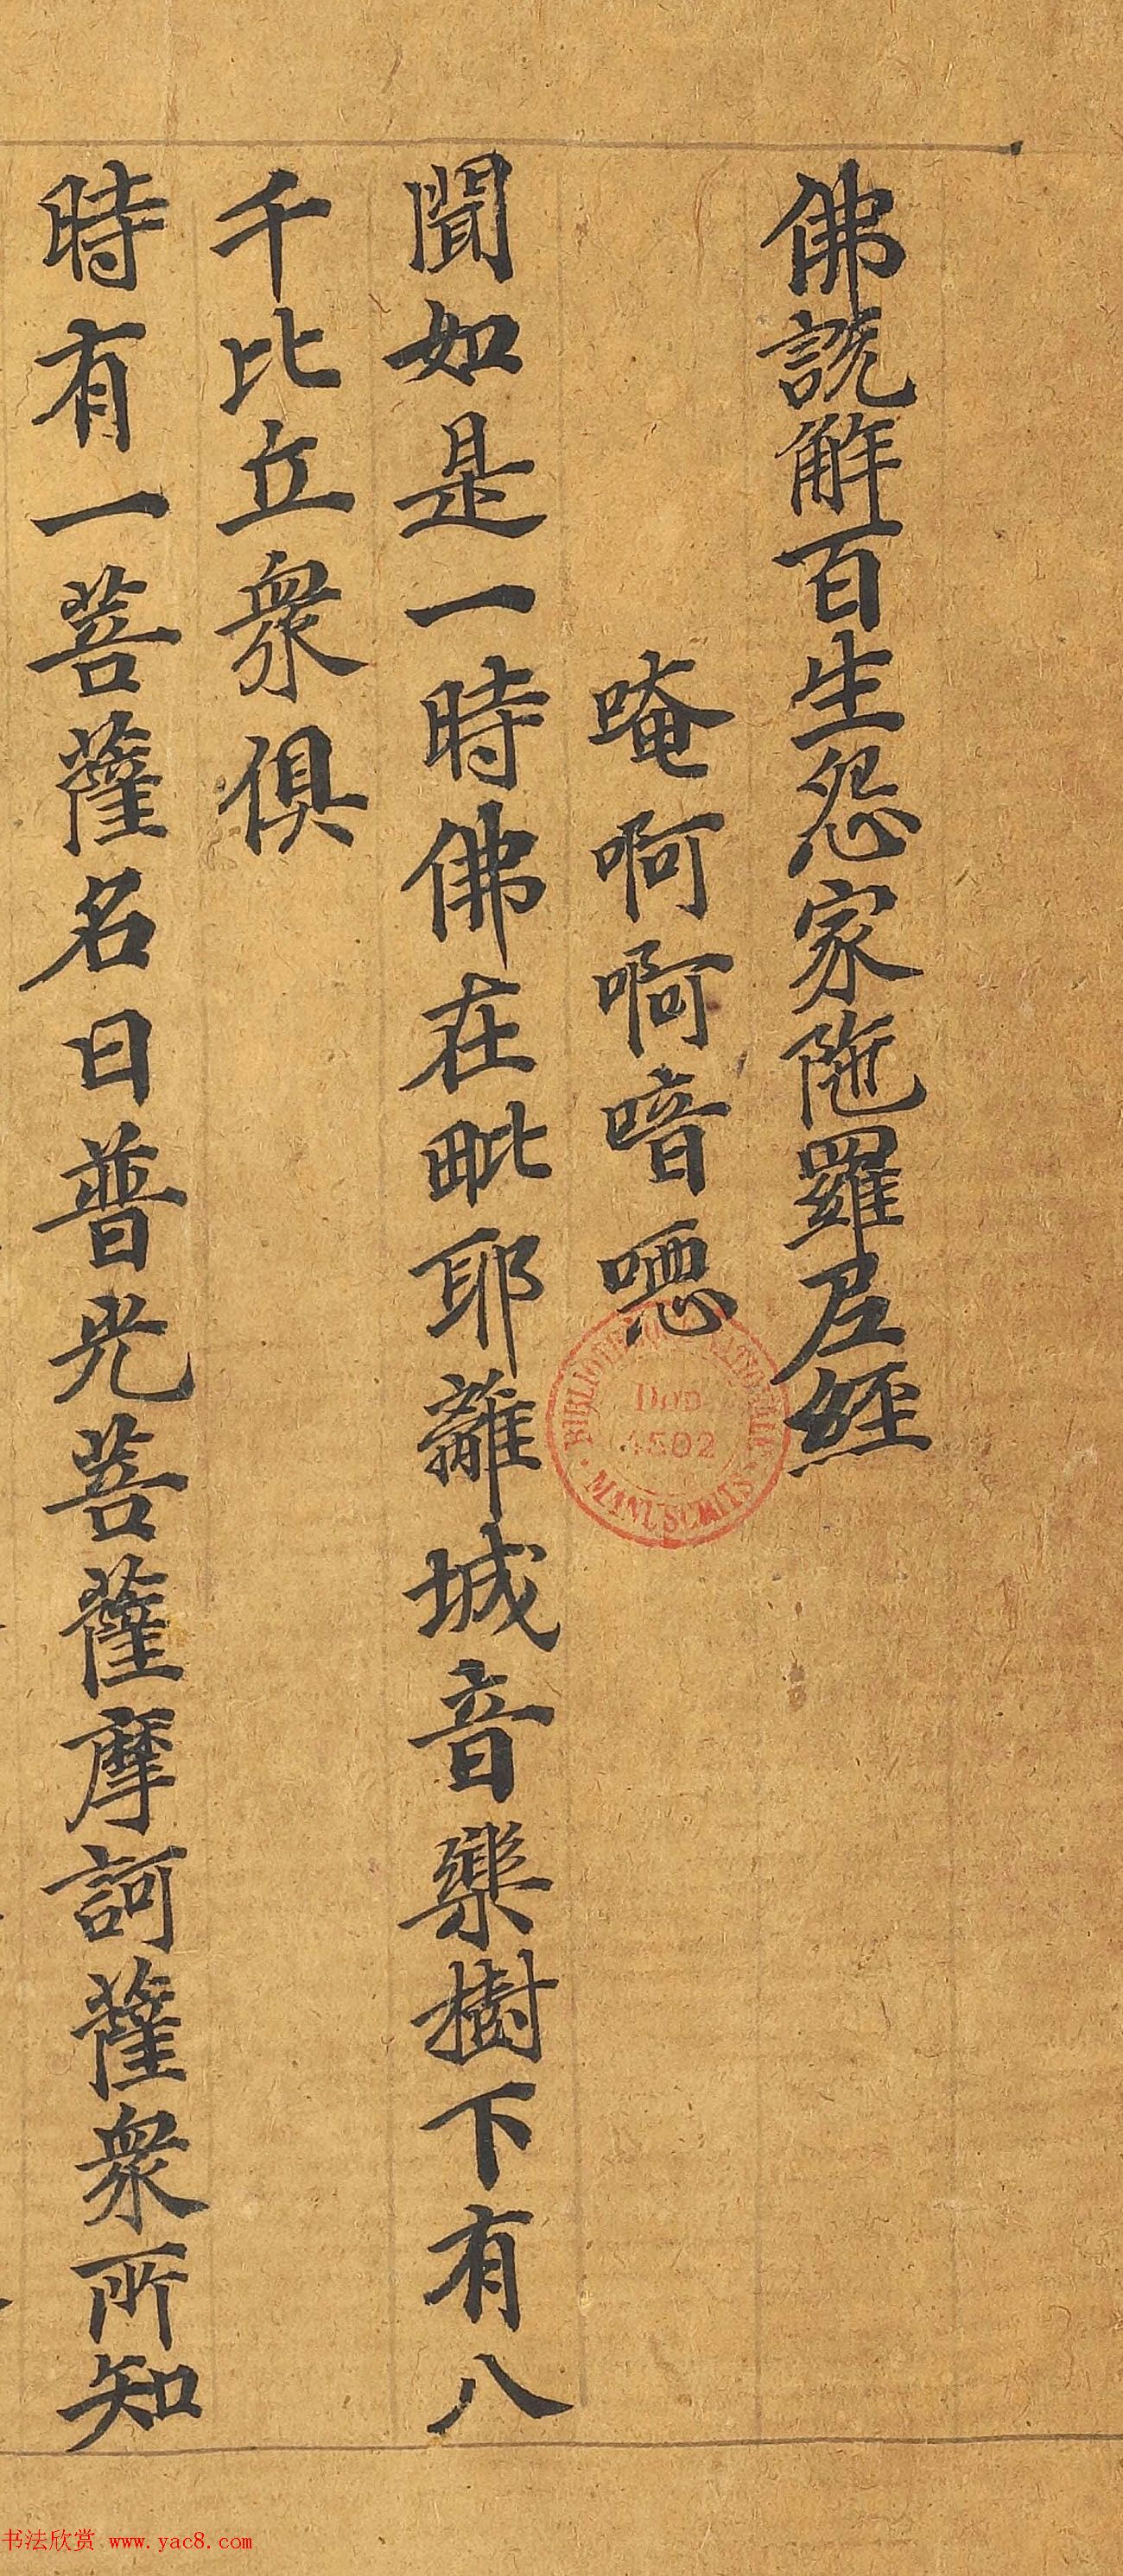 佛說解百生怨家陁羅尼經
唵啊啊喑噁
聞如是一時佛在毗耶離城音樂樹下有八
千比丘衆俱
時有一菩薩名曰普光菩薩摩訶薩衆所知
BIBLIOTHEQUE NATIONALE
Don
4502
MANUSCRITS
书法欣赏 www.yac8.com